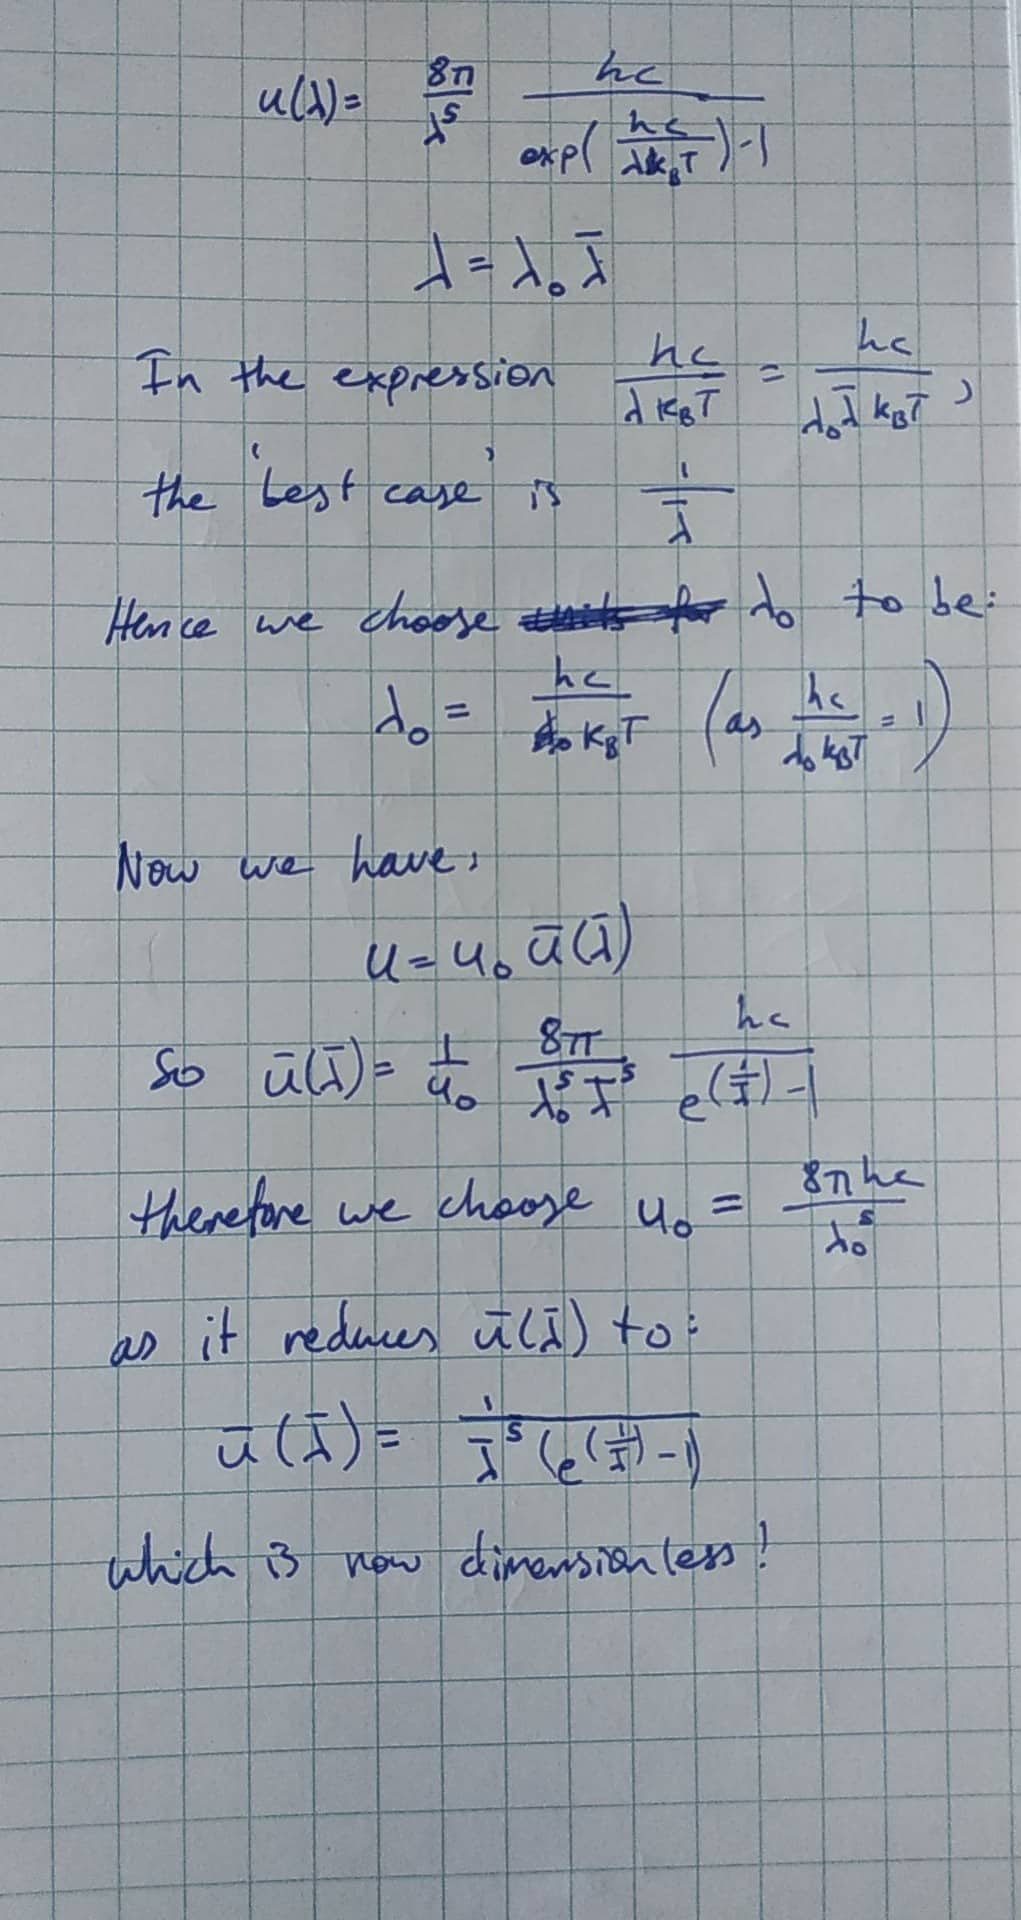 u(λ) = 8π/λ⁵ hc/(exp(hc/(λk_BT)) - 1)
λ = λ₀ λ̄
In the expression hc/(λ k_BT) = hc/(λ₀λ̄ k_BT),
the 'best case' is 1/λ̄
Hence we choose λ₀ to be:
λ₀ = hc/(k_BT) (as hc/(λ₀ k_BT) = 1)
Now we have:
u = u₀ ū(λ̄)
So ū(λ̄) = 1/u₀ 8π/(λ₀⁵ λ̄⁵) hc/(e^(1/λ̄) - 1)
therefore we choose u₀ = 8πhc/λ₀⁵
as it reduces ū(λ̄) to:
ū(λ̄) = 1/(λ̄⁵(e^(1/λ̄) - 1))
which is now dimensionless!